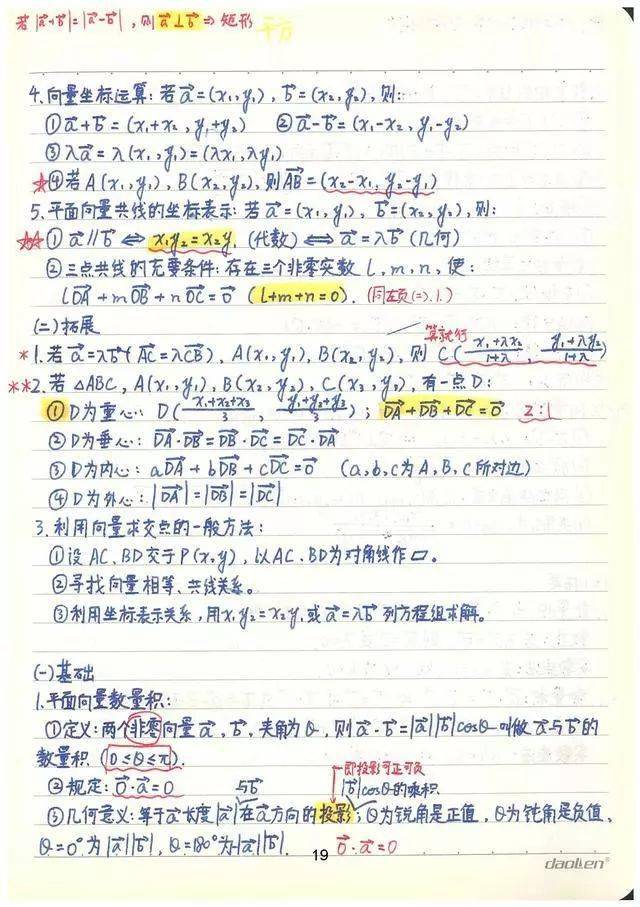 若|a⃗+b⃗|=|a⃗-b⃗|,则a⃗⊥b⃗⇒矩形 平方
4.向量坐标运算:若a⃗=(x₁,y₁),b⃗=(x₂,y₂),则:
①a⃗+b⃗=(x₁+x₂,y₁+y₂) ②a⃗-b⃗=(x₁-x₂,y₁-y₂)
③λa⃗=λ(x₁,y₁)=(λx₁,λy₁)
★④若A(x₁,y₁),B(x₂,y₂),则AB⃗=(x₂-x₁,y₂-y₁)
5.平面向量共线的坐标表示:若a⃗=(x₁,y₁),b⃗=(x₂,y₂),则:
★★①a⃗∥b⃗⇔x₁y₂=x₂y₁(代数)⇔a⃗=λb⃗(几何)
②三点共线的充要条件:存在三个非零实数l,m,n,使:
lOA⃗+mOB⃗+nOC⃗=0⃗(l+m+n=0).(同左页(=).1.)
(二)拓展
算就行
*1.若a⃗=λb⃗(AC⃗=λCB⃗),A(x₁,y₁),B(x₂,y₂),则C(x₁+λx₂/1+λ,y₁+λy₂/1+λ)
**2.若△ABC,A(x₁,y₁),B(x₂,y₂),C(x₃,y₃),有一点D:
①D为重心:D(x₁+x₂+x₃/3,y₁+y₂+y₃/3);DA⃗+DB⃗+DC⃗=0⃗ 2:1
②D为垂心:DA⃗·DB⃗=DB⃗·DC⃗=DC⃗·DA⃗
③D为内心:aDA⃗+bDB⃗+cDC⃗=0⃗ (a,b,c为A,B,C所对边)
④D为外心:|DA⃗|=|DB⃗|=|DC⃗|
3.利用向量求交点的一般方法:
①设AC、BD交于P(x,y),以AC、BD为对角线作▱。
②寻找向量相等、共线关系。
③利用坐标表示关系,用x₁y₂=x₂y₁或a⃗=λb⃗列方程组求解。
(一)基础
1.平面向量数量积:
①定义:两个非零向量a⃗,b⃗,夹角为θ,则a⃗·b⃗=|a⃗||b⃗|cosθ叫做a⃗与b⃗的
数量积(0≤θ≤π).
即投影可正可负
②规定:0⃗·a⃗=0 与b⃗ |b⃗|cosθ的乘积.
③几何意义:等于a⃗长度|a⃗|在a⃗方向的投影;θ为锐角是正值,θ为钝角是负值,
θ=0°为|a⃗||b⃗|,θ=180°为-|a⃗||b⃗|. 0⃗·a⃗=0
19
daolien®